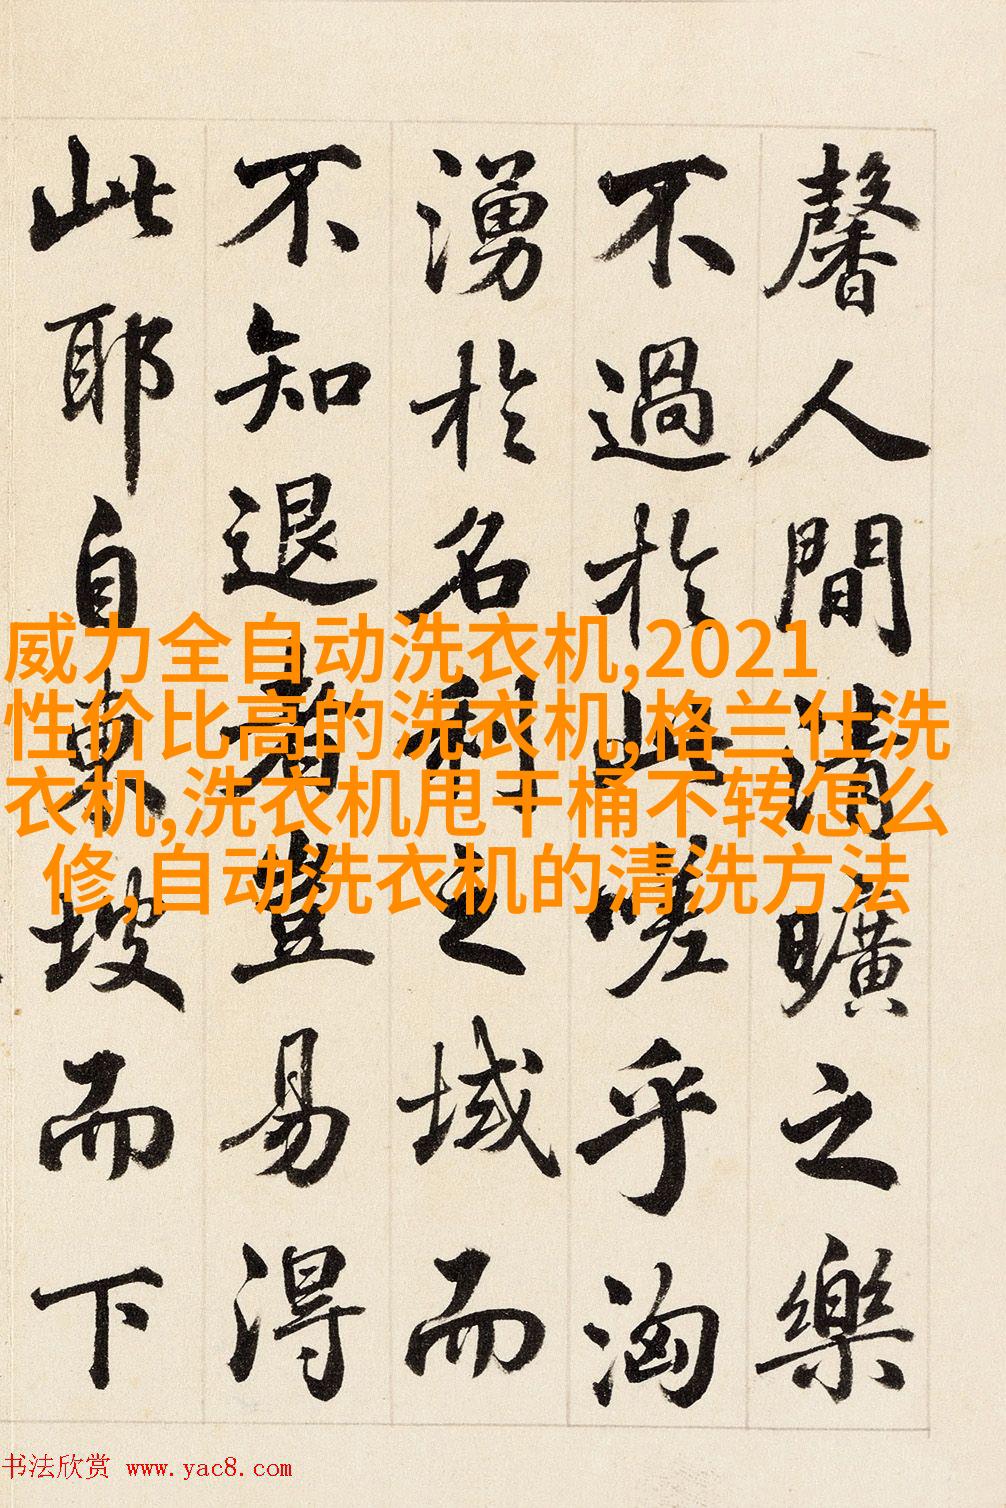 馨人間清曠之樂
不過於此嗟乎洶
湧於名利之域而
不知退者豈易得
此耶自東坡而下
威力全自动洗衣机,2021
性价比高的洗衣机,格兰仕洗
衣机,洗衣机甩干桶不转怎么
修,自动洗衣机的清洗方法
书法欣赏 www.yac8.com